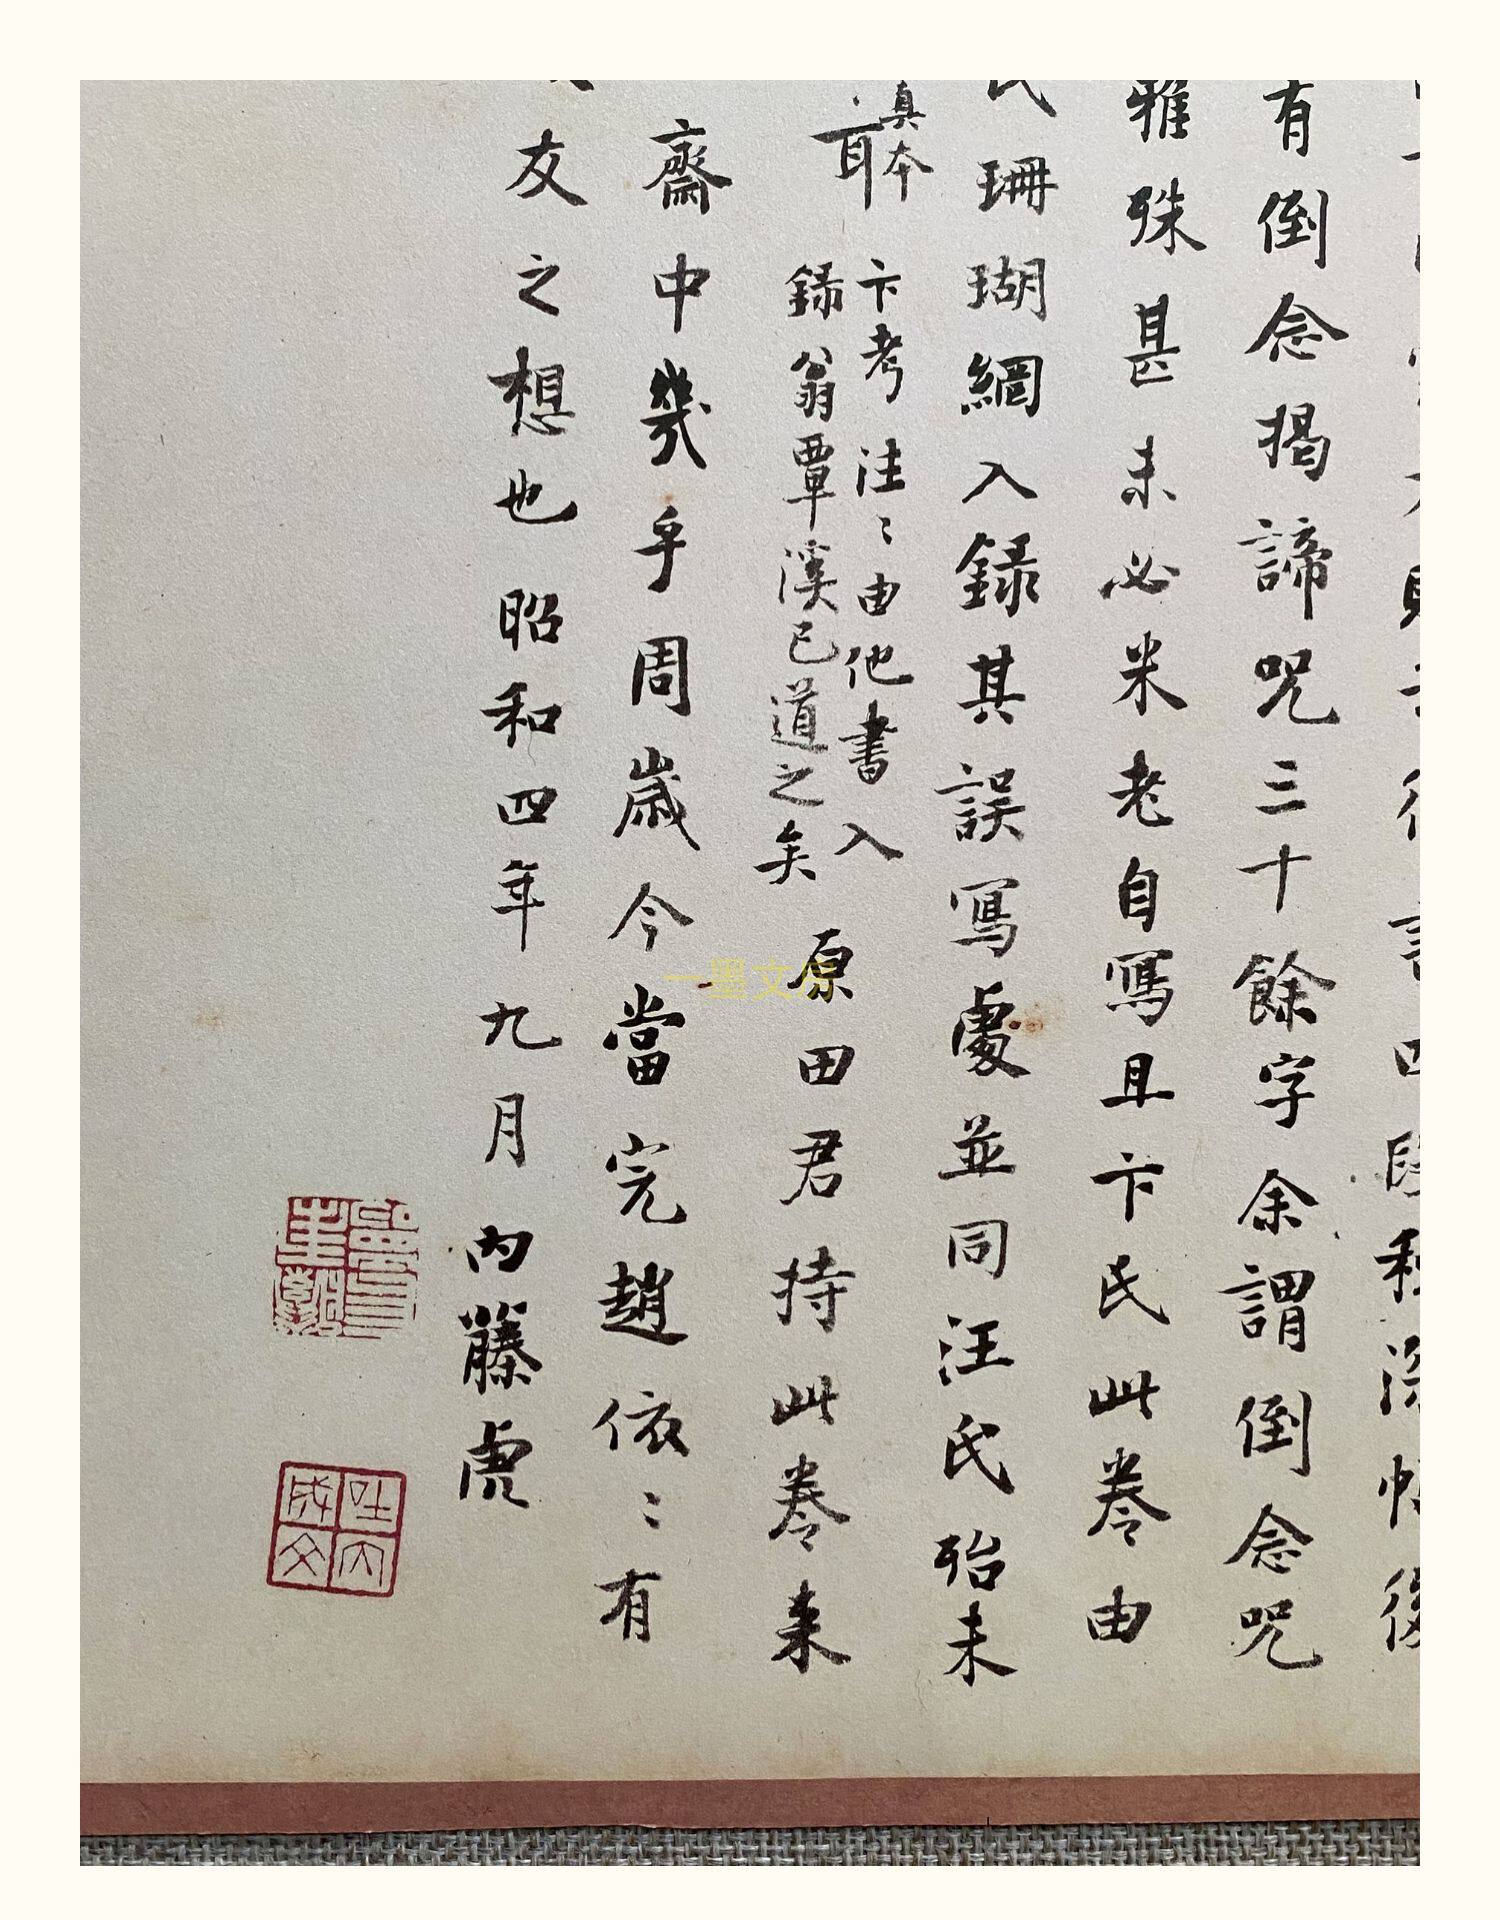 有倒念揭諦呪三十餘字余謂倒念呪
雅殊甚未必米老自寫且卞氏此卷由
氏珊瑚網入錄其誤寫處並同汪氏殆未
真本
耳
卞考注〻由他書入
錄翁覃溪已道之矣
原田君持此卷来
齋中幾乎周歲今當完趙依〻有
友之想也昭和四年九月內藤虎
一墨文房
吐内
成文